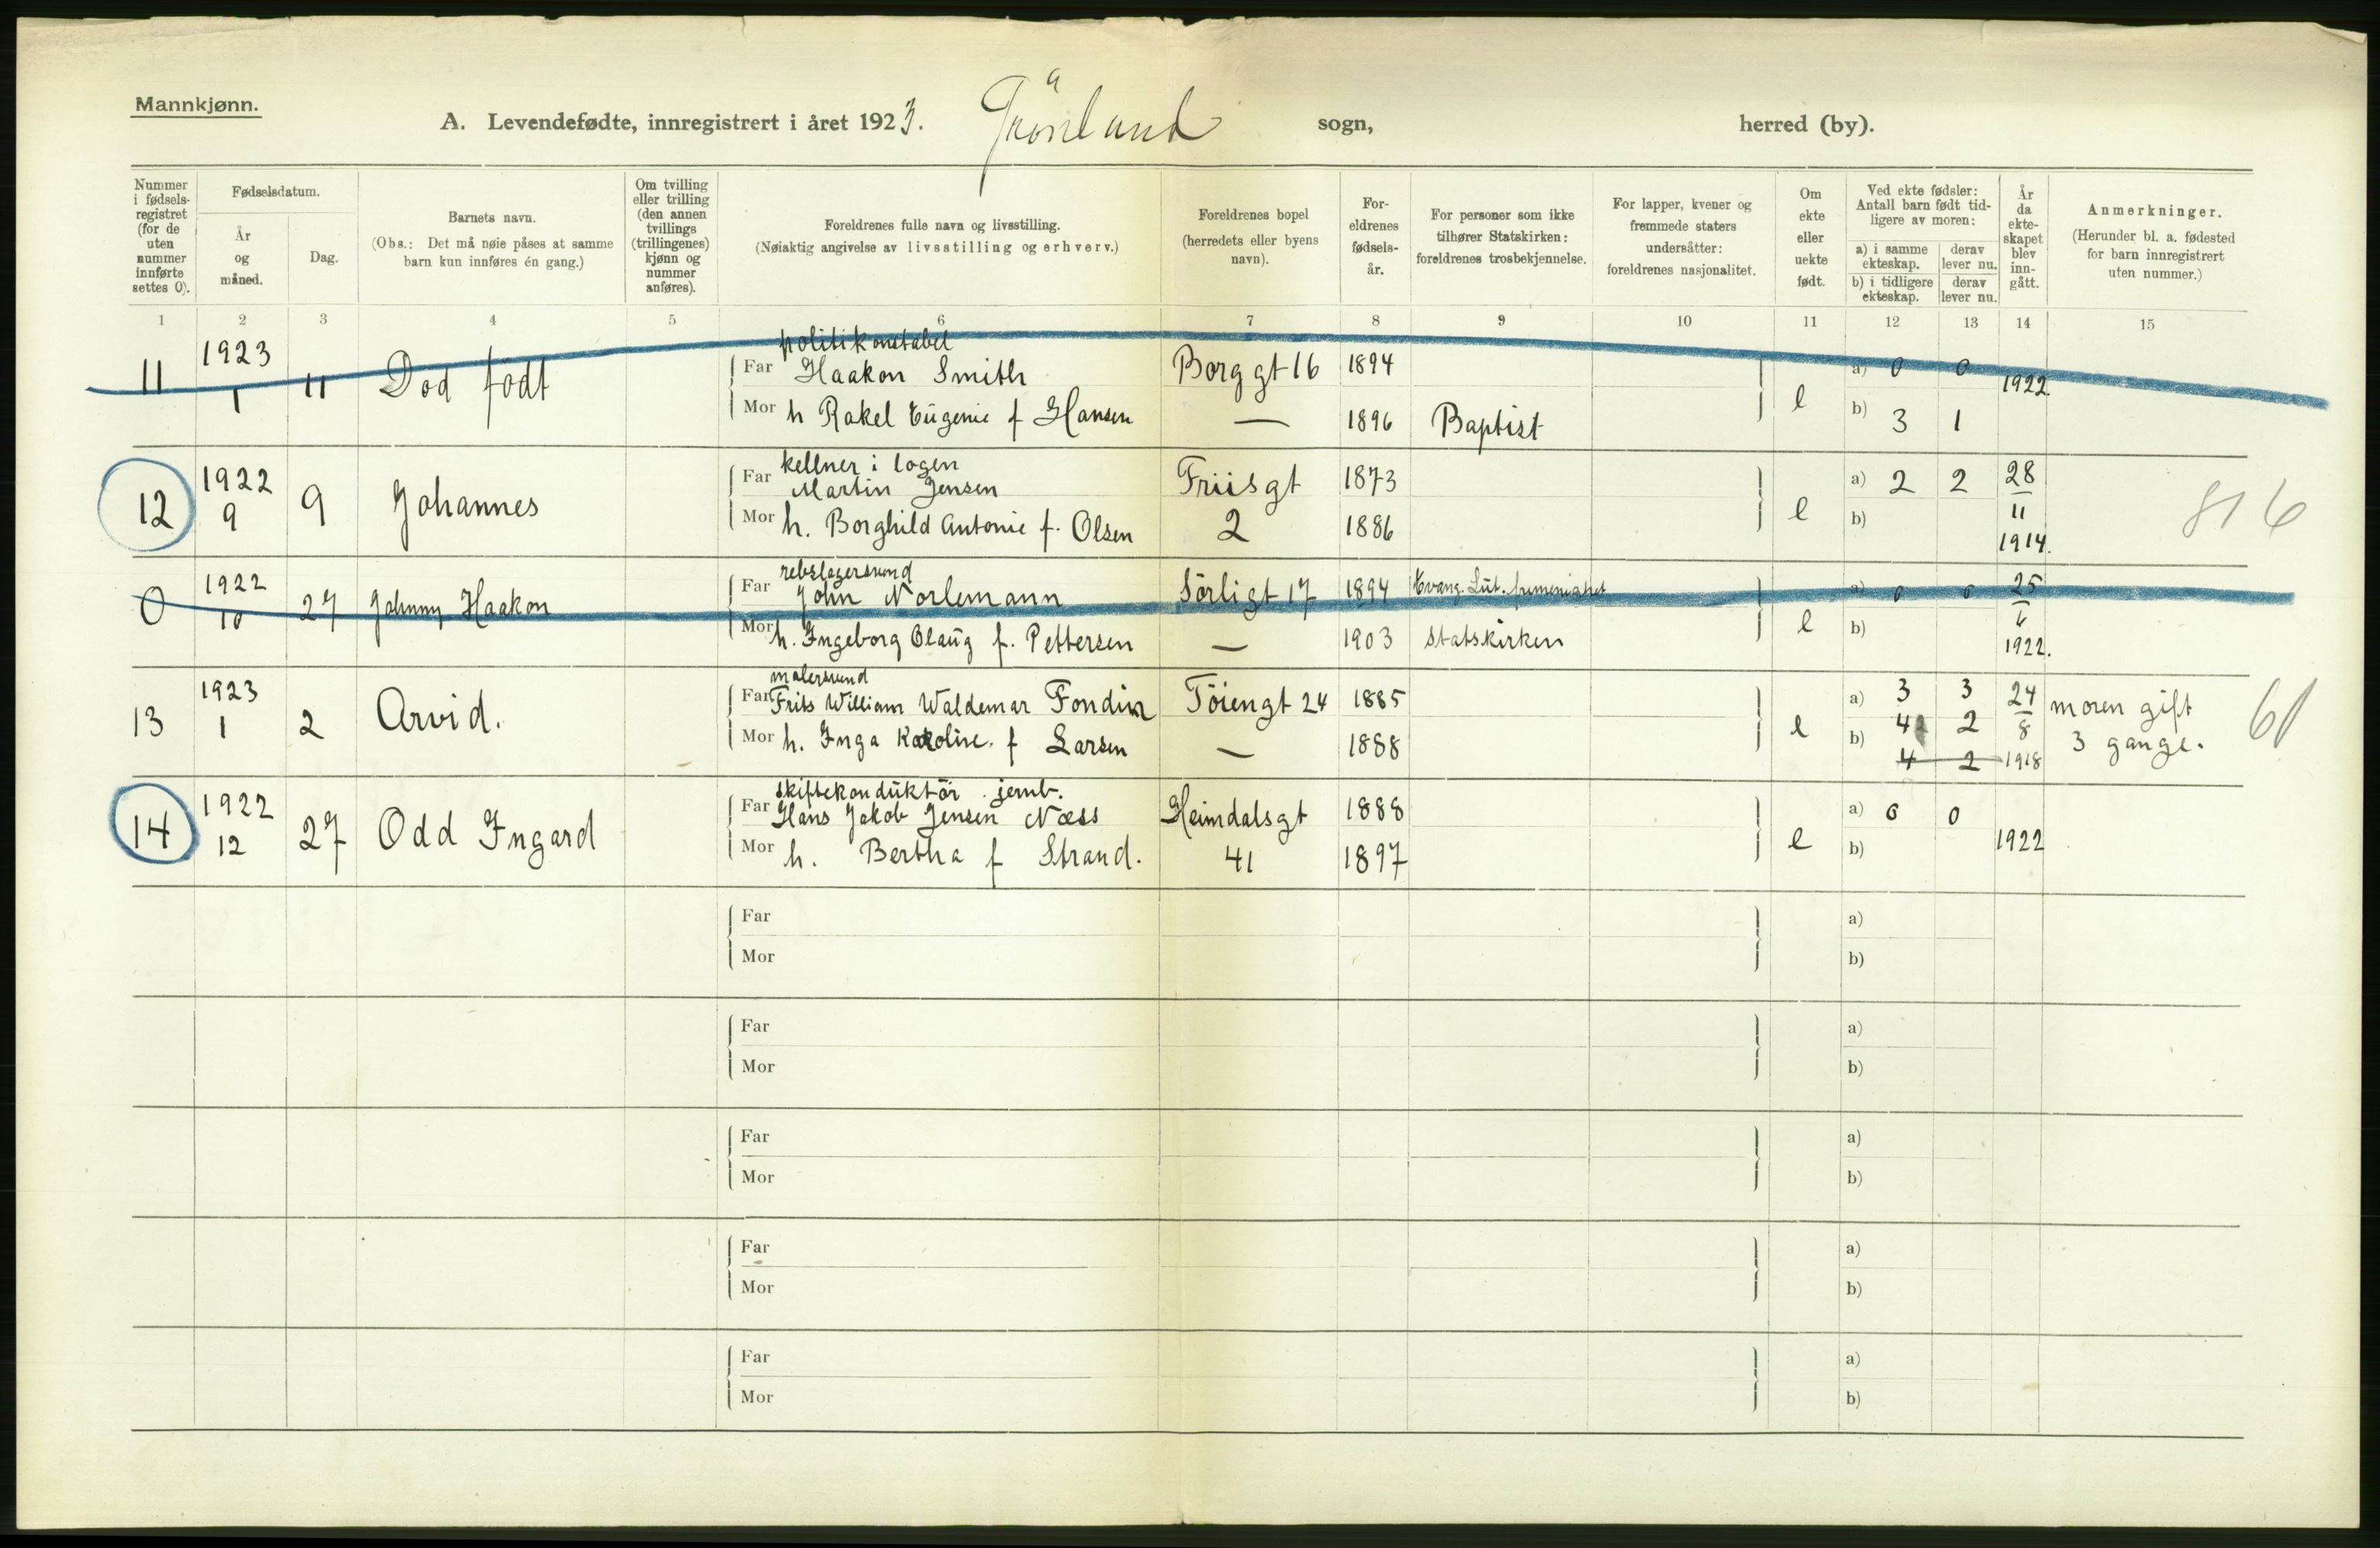 Mannkjønn.
A. Levendefødte, innregistrert i året 1923. Grönland sogn, herred (by).
Nummer i fødselsregistret (for de uten nummer innførte settes 0).
Fødselsdatum.
År og måned.
Dag.
Barnets navn.
(Obs.: Det må nøie påses at samme barn kun innføres én gang.)
Om tvilling eller trilling (den annen tvillings (trillingenes) kjønn og nummer anføres).
Foreldrenes fulle navn og livsstilling.
(Nøiaktig angivelse av livsstilling og erhverv.)
Foreldrenes bopel (herredets eller byens navn).
Foreldrenes fødselsår.
For personer som ikke tilhører Statskirken: foreldrenes trosbekjennelse.
For lapper, kvener og fremmede staters undersåtter: foreldrenes nasjonalitet.
Om ekte eller uekte født.
Ved ekte fødsler: Antall barn født tidligere av moren:
a) i samme ekteskap. derav lever nu.
b) i tidligere ekteskap. derav lever nu.
År da ekteskapet blev inngått.
Anmerkninger.
(Herunder bl. a. fødested for barn innregistrert uten nummer.)
1 2 3 4 5 6 7 8 9 10 11 12 13 14 15
politikonstabel
11 1923 1 11 Død født Far Haakon Smith Borggt 16 1894 e a) 0 0 1922.
Mor h Rakel Eugenie f Hansen — 1896 Baptist b) 3 1
kellner i logen
12 1922 9 9 Johannes Far Martin Jensen Friisgt 1873 e a) 2 2 28/11 1914. 816
Mor h. Borghild Antonie f. Olsen 2 1886 b)
rebslagersvend
0 1922 10 27 Johnny Haakon Far John Norlemann Sörligt 17 1894 Evang. Lut. frimenighet e a) 0 0 25
Mor h. Ingeborg Olaug f. Pettersen — 1903 Statskirken b) 1922.
malersvend
13 1923 1 2 Arvid. Far Frits William Waldemar Fondin Töiengt 24 1885 e a) 3 3 24/8 1918 moren gift 61
Mor h. Inga Karoline. f Larsen — 1888 b) 4 2 3 gange.
4 2
skiftekonduktör jernb.
14 1922 12 27 Odd Ingard Far Hans Jakob Jensen Næss Heimdalsgt 1888 e a) 0 0 1922
Mor h. Bertha f Strand. 41 1897 b)
Far a)
Mor b)
Far a)
Mor b)
Far a)
Mor b)
Far a)
Mor b)
Far a)
Mor b)